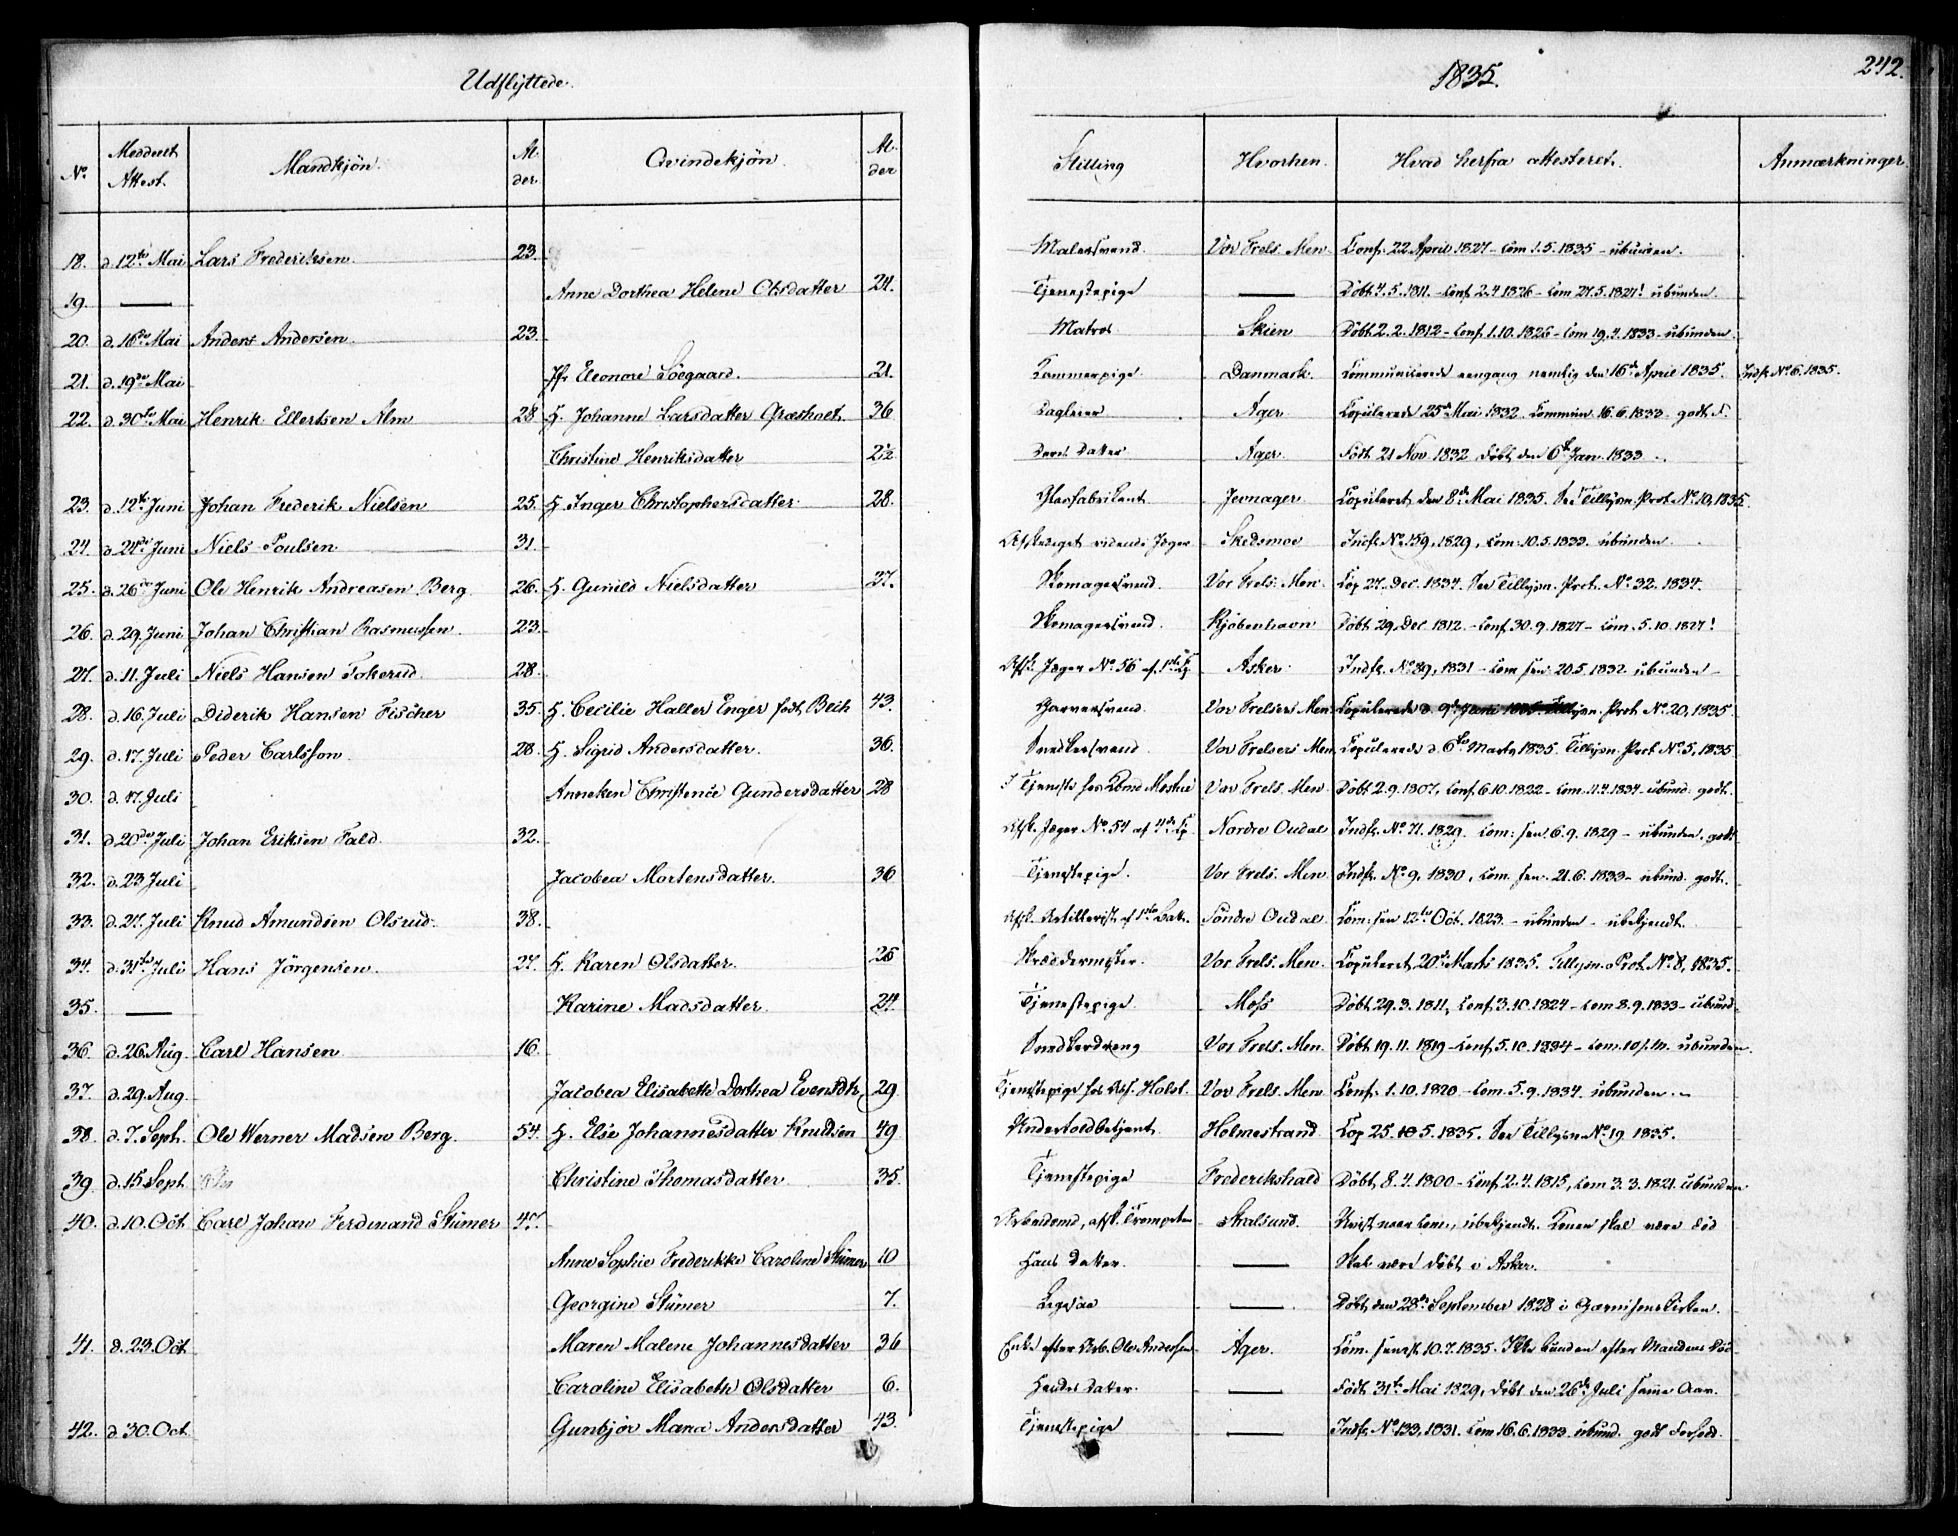 Udflyttede.
1835.
242.
No Meddeelt Attest. Mandkjön. Alder. Qvindekjön. Alder Stilling Hvorhen. Hvad herfra attesteret. Anmærkninger.
18. d. 12te Mai Lars Frederiksen. 23. Malersvend. Vor Frels. Men. Conf. 22 April 1827 - Com 1.5.1835 - ubunden.
19. — Anne Dorthea Helene Olsdatter 24. Tjenestepige — Döbt 4.5.1811. - Conf. 2.4.1826 - Com 24.5.1827! ubunden.
20. d. 16de Mai Anders Andersen. 23. Matros Skien Döbt 2.2.1812 - Conf. 1.10.1826 - Com 19.4.1833 - ubunden.
21. d. 19de Mai Jfr Eleonore Söegaard. 21. Kammerpige. Danmark. Communicerede eengang nemlig den 16de April 1835. Indf. No 6. 1835.
22. d. 30te Mai Henrik Ellertsen Alm 28 H. Johanne Larsdatter Græsholt. 36 Dagleier Ager Copulerede 25de Mai 1832. Commun. 16.6.1833 - godt F.
Christine Henriksdatter 2½ Deres Datter Ager. Födt 21 Nov 1832 döbt den 6te Jan. 1833.
23. d. 12te Juni Johan Frederik Nielsen 25. H. Inger Christophersdatter. 28. Glasfabrikant. Jevnager. Copuleret den 8de Mai 1835. See Tillysn. Prot. No 10, 1835
24. d. 24de Juni Niels Poulsen 31. Afskediget ridende Jæger Skedsmoe Indf. No 159, 1829, Com: 10.5.1833. ubunden.
25. d. 26de Juni Ole Henrik Andreasen Berg 26. H. Gunild Nielsdatter 37. Skomagersvend. Vor Frels. Men. Cop 27. Dec. 1834. See Tillysn. Prot. No 32. 1834.
26. d. 29. Juni Johan Christian Rasmussen. 23. Skomagersvend. Kjöbenhavn Döbt 29. Dec. 1812. - Conf. 30.9.1827 - Com. 5.10.1827!
27. d. 11. Juli Niels Hansen Tokerud. 28. Afsk. Jæger No 56 af 1ste Cp. Asker Indf. No 89, 1831 - Com sen. 20.5.1832 ubunden -
28. d. 16. Juli Diderik Hansen Fischer 35 H. Cecilie Haller Enger födt Bech 43. Garversvend. Vor Frelsers Men. Copulerede d. 9de Juni 1835. Tillysn. Prot. No 20, 1835
29. d. 17. Juli Peder Carlsson. 28 H. Sigrid Andersdatter. 36. Snedkersvend Vor Frelsers Men. Copulerede d. 6te Marts 1835. Tillysn. Prot No 5, 1835
30. d. 17. Juli Anneken Christence Gundersdatter 28 I Tjeneste hos Kbmd Vor Frels. Men. Döbt 2.9.1807, Conf. 6.10.1822 - Com. 11.4.1834 - ubund. godt.
31. d. 20de Juli Johan Eriksen Fald. 32. Afsk. Jæger No 54 af 4de Cp. Nordre Oudal Indf. No 71. 1829. Com: sen. 6.9.1829 - ubunden. godt
32. d. 23 Juli Jacobea Mortensdatter. 36 Tjenestepige. Vor Frels. Men. Indf. No 9, 1830, Com. sen. 21.6.1833 - ubund. godt.
33. d. 27. Juli Knud Amundsen Olsrud. 38. Afsk. Artillerist af 1ste Batt. Söndre Oudal Com: sen 12te Oct. 1823. - ubunden - ubekjendt.
34. d. 31te Juli Hans Jörgensen. 27. H. Karen Olsdatter. 26 Skræddermester. Vor Frels. Men. Copuleret 20de Marts 1835. Tillysn. Prot. No 8, 1835.
35. — Karine Madsdatter. 24. Tjenestepige. Moss Döbt 29.3.1811, Conf. 3.10.1824 - Com 8.9.1833 - ubund.
36 d. 26. Aug. Carl Hansen 16. Snedkerdreng Vor Frels. Men. Döbt 19.11.1819 - Conf. 5.10.1834 - Com. ubunden.
37. d. 29. Aug. Jacobea Elisabeth Dorthea Evensdtr. 29. Tjenestepige hos Ass. Holst. Vor Frels. Men Conf. 1.10.1820 - Com. 5.9.1834. ubunden.
38. d. 7. Sept. Ole Werner Madsen Berg. 54. H. Else Johannesdatter Knudsen 49 Undertoldbetjent. Holmestrand Cop 25. 5.1835. See Tillysn. No 19 1835.
39. d. 15 Sept. Christine Thomasdatter 35. Tjenestepige Frederikshald Döbt 8.4.1800 - Conf. 2.4.1815, Com 3.3.1821. ubunden
40. d. 10. Oct. Carl Johan Ferdinand Stümer 47. Arbeidsmd, afsk. Trompeter Stralsund. Uvist naar Com., ubekjendt. Konen skal være död
Anne Sophie Frederikke Caroline Stümer 10 Hans Datter. — Skal være döbt i Asker.
Georgine Stümer 7. Ligesaa — Döbt den 28de September 1828 i Garnisonskirken.
41. d. 23. Oct. Maren Malene Johannesdatter 36 Enke efter Arb. Ole Andersen Ager. Com. senest 10.7.1835. Ikke bunden efter Mandens Död
Caroline Elisabeth Olsdatter 6. Hendes Datter. — Födt 31te Mai 1829, döbt den 26de Juli samme Aar.
42. d. 30. Oct. Gunbjör Maria Andersdatter 43. Tjenestepige — Indf. No 133, 1831. Com 16.6.1833. ubund. godt Forhold.